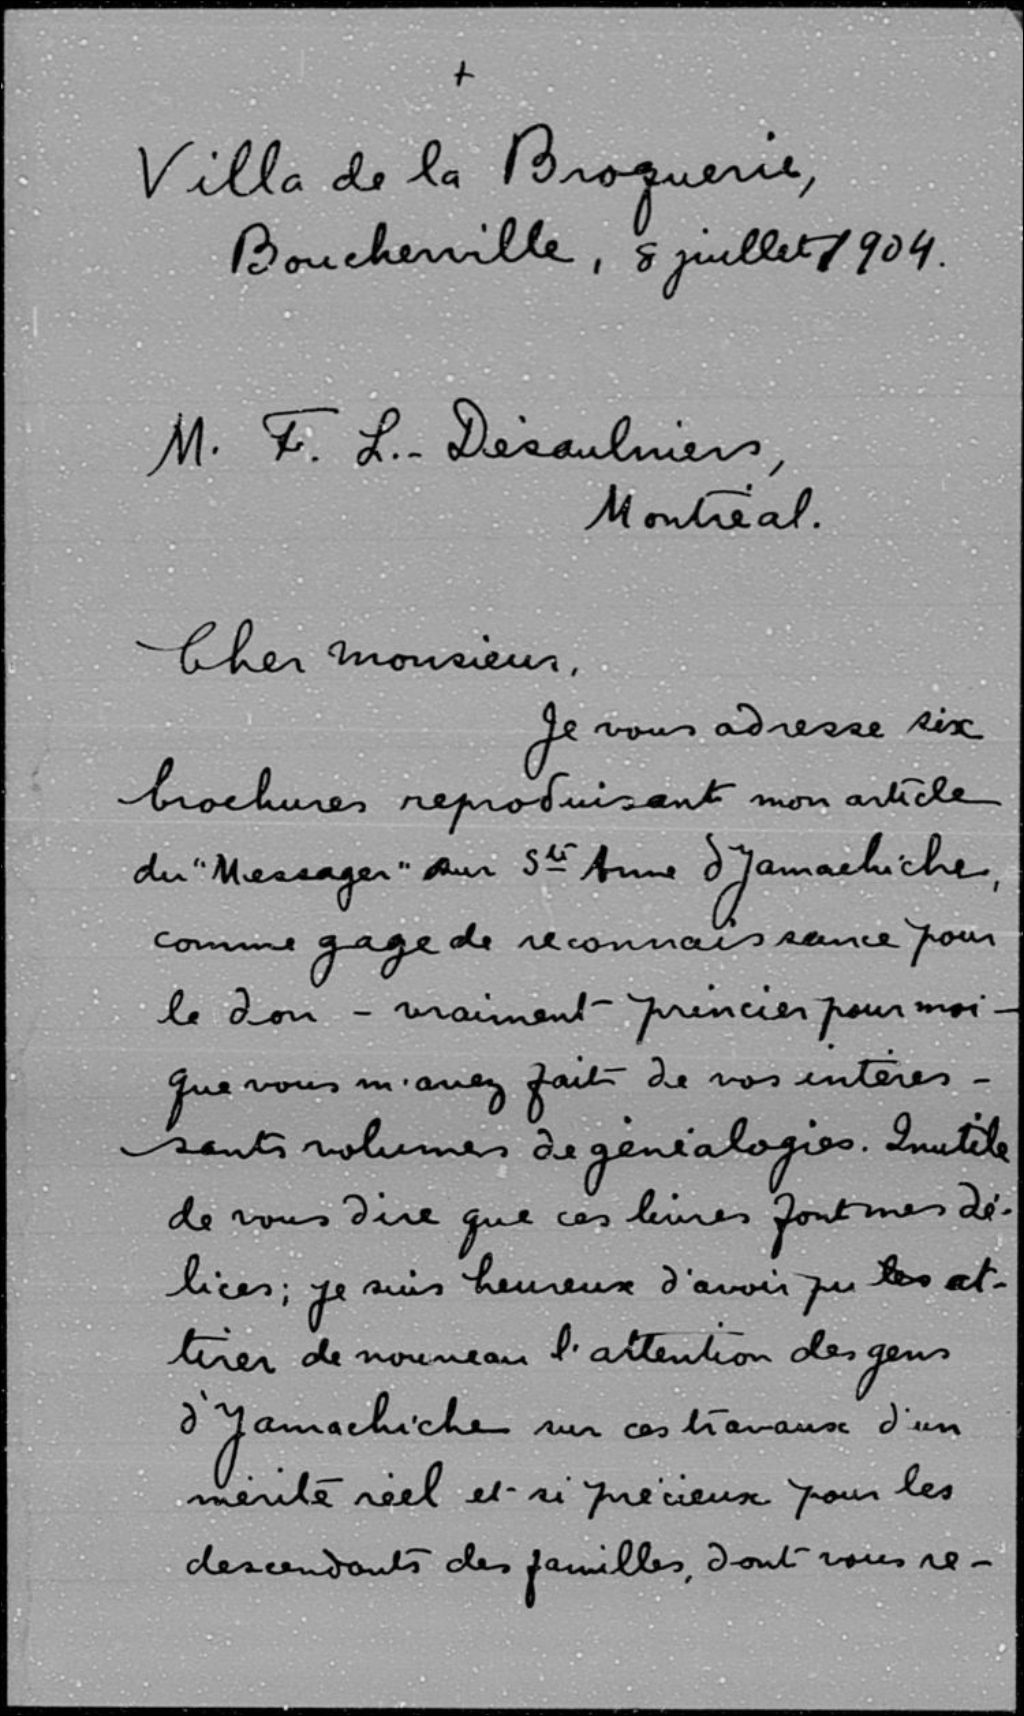 +
Villa de la Broquerie,
Boucherville, 8 juillet 1904.
M. F. L.- Désaulniers,
Montréal.
Cher monsieur,
Je vous adresse six
brochures reproduisant mon article
du "Messager" sur Ste Anne d'Yamachiche,
comme gage de reconnaissance pour
le don - vraiment princier pour moi -
que vous m'avez fait de vos intéres-
sants volumes de généalogies. Inutile
de vous dire que ces livres font mes dé-
lices; je suis heureux d'avoir pu les at-
tirer de nouveau l'attention des gens
d'Yamachiche sur ces travaux d'un
mérite réel et si précieux pour les
descendants des familles, dont vous re-